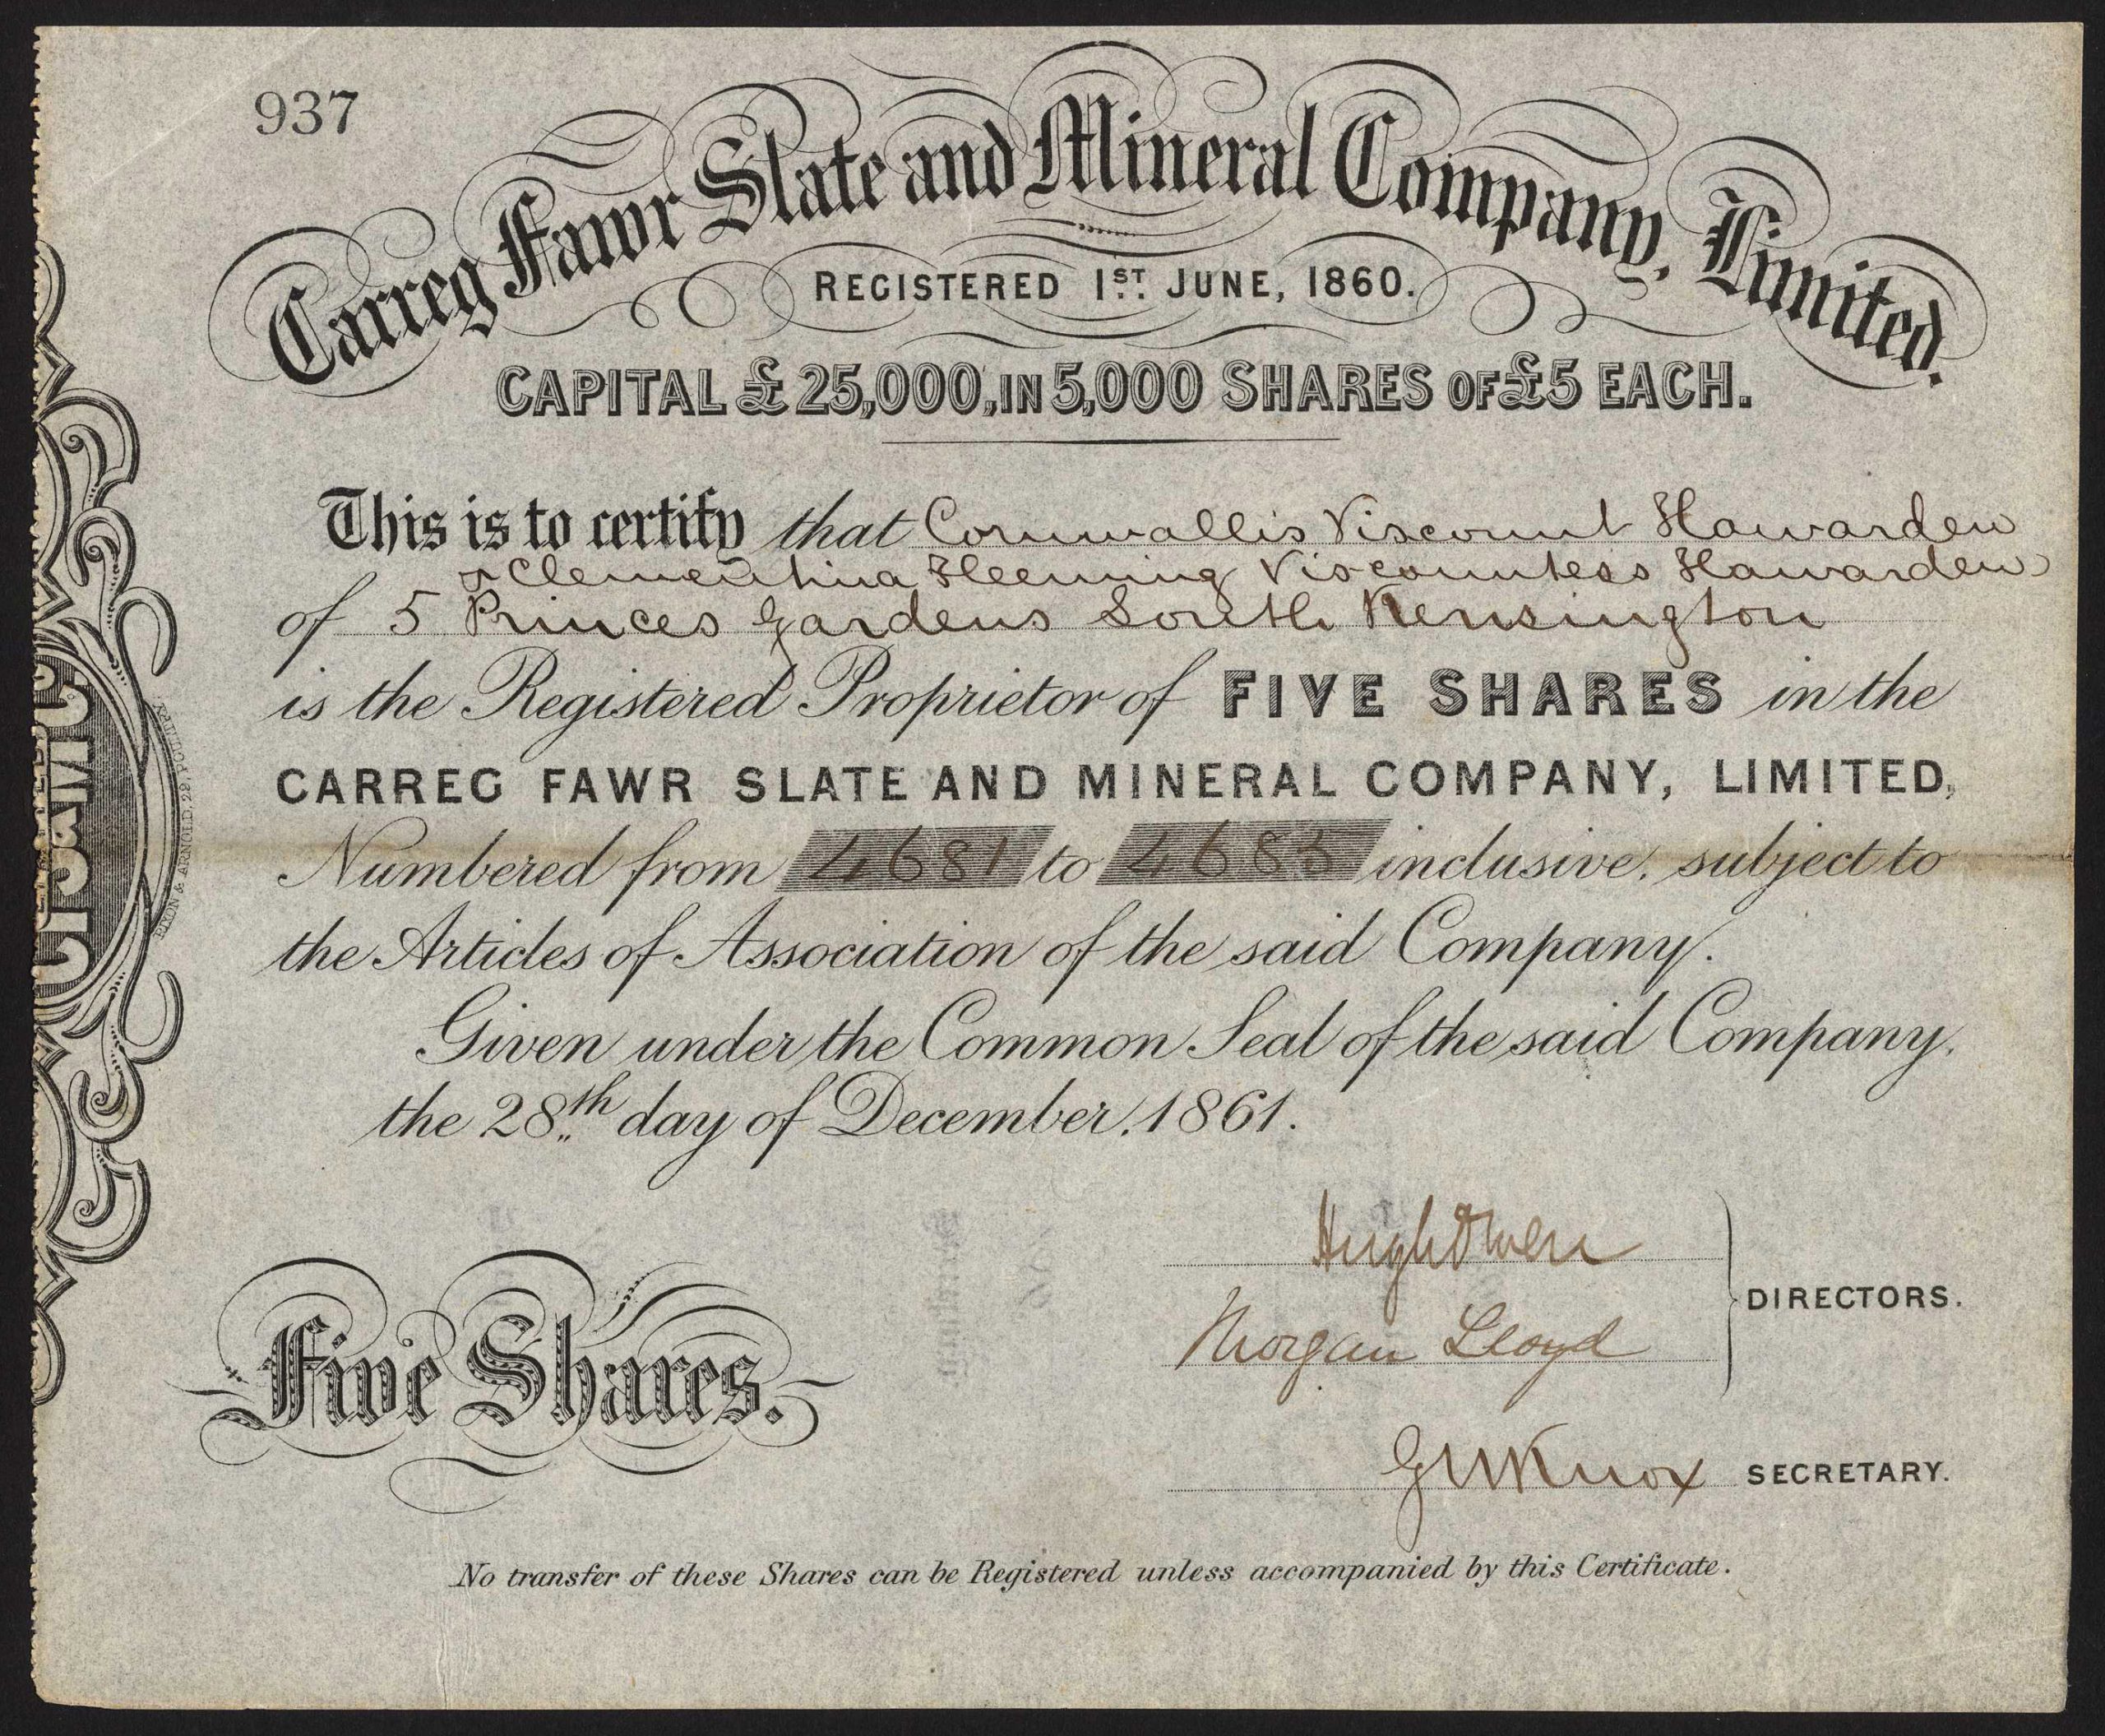 937
Carreg Fawr Slate and Mineral Company, Limited.
REGISTERED 1ST. JUNE, 1860.
CAPITAL £25,000, IN 5,000 SHARES OF £5 EACH.
This is to certify that Cornwallis Viscount Hawarden
& Clementina Fleeming Viscountess Hawarden
of 5 Princes Gardens South Kensington
is the Registered Proprietor of FIVE SHARES in the
CARREG FAWR SLATE AND MINERAL COMPANY, LIMITED,
Numbered from 4681 to 4685 inclusive, subject to
the Articles of Association of the said Company.
Given under the Common Seal of the said Company,
the 28th day of December, 1861.
Hugh Owen
Morgan Lloyd
DIRECTORS.
Five Shares.
G W Knox SECRETARY.
No transfer of these Shares can be Registered unless accompanied by this Certificate.
& ARNOLD, 29, POULTRY